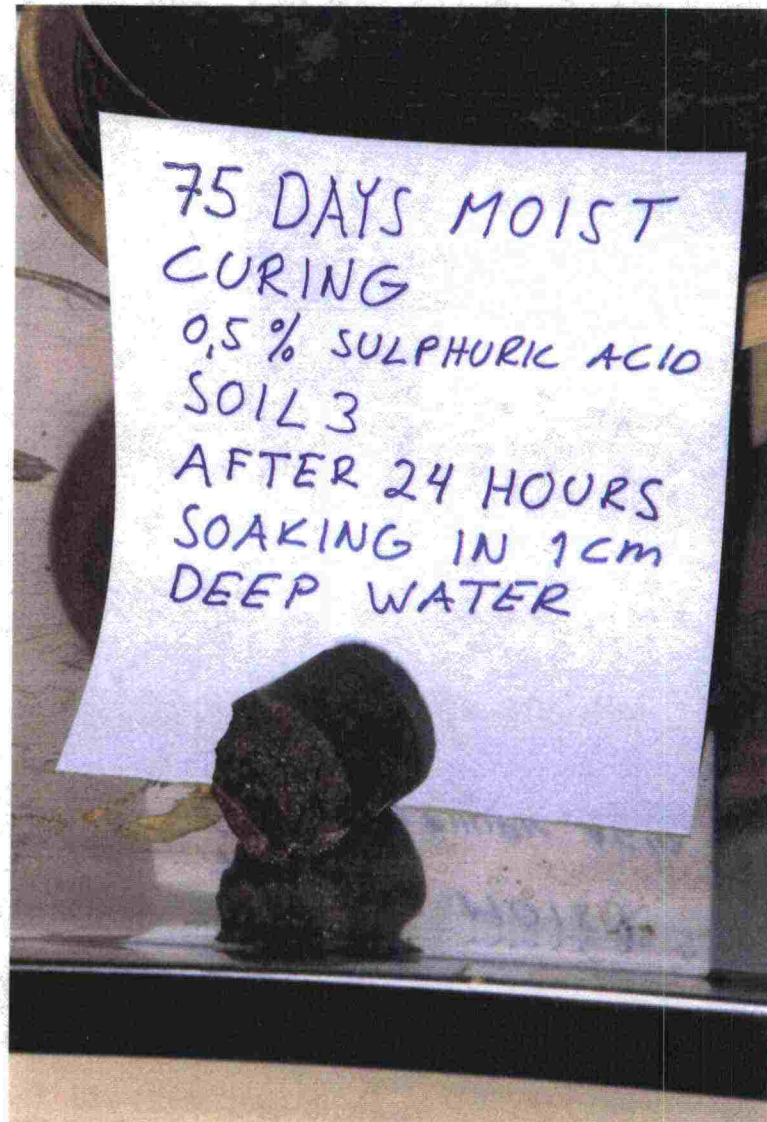 75 DAYS MOIST
CURING
0,5% SULPHURIC ACID
SOIL 3
AFTER 24 HOURS
SOAKING IN 1cm
DEEP WATER